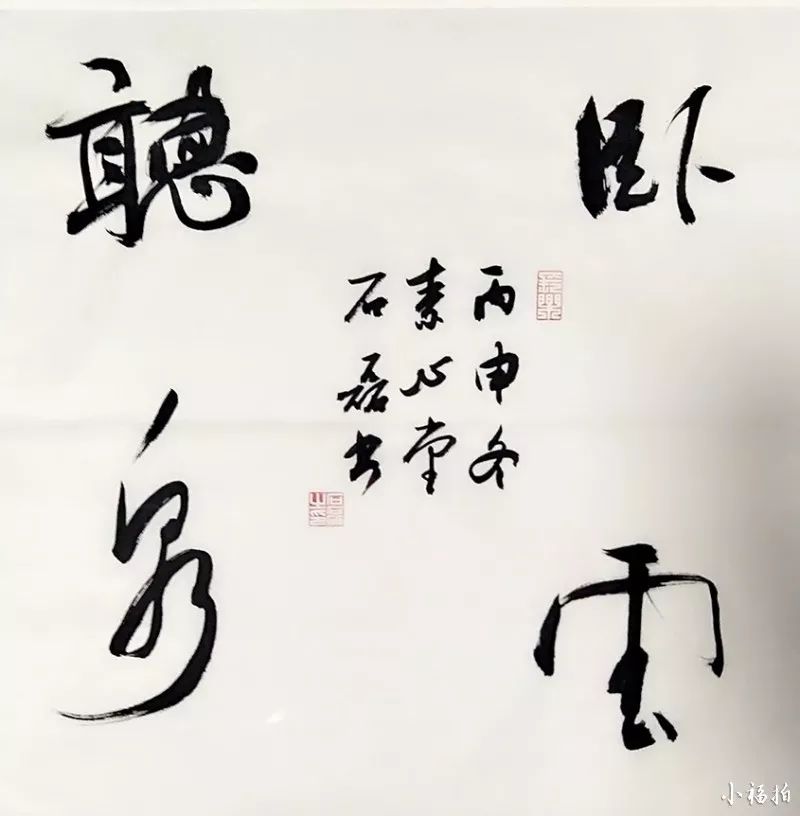 卧雲
聽泉
丙申冬
素心堂
石磊书
小福拍